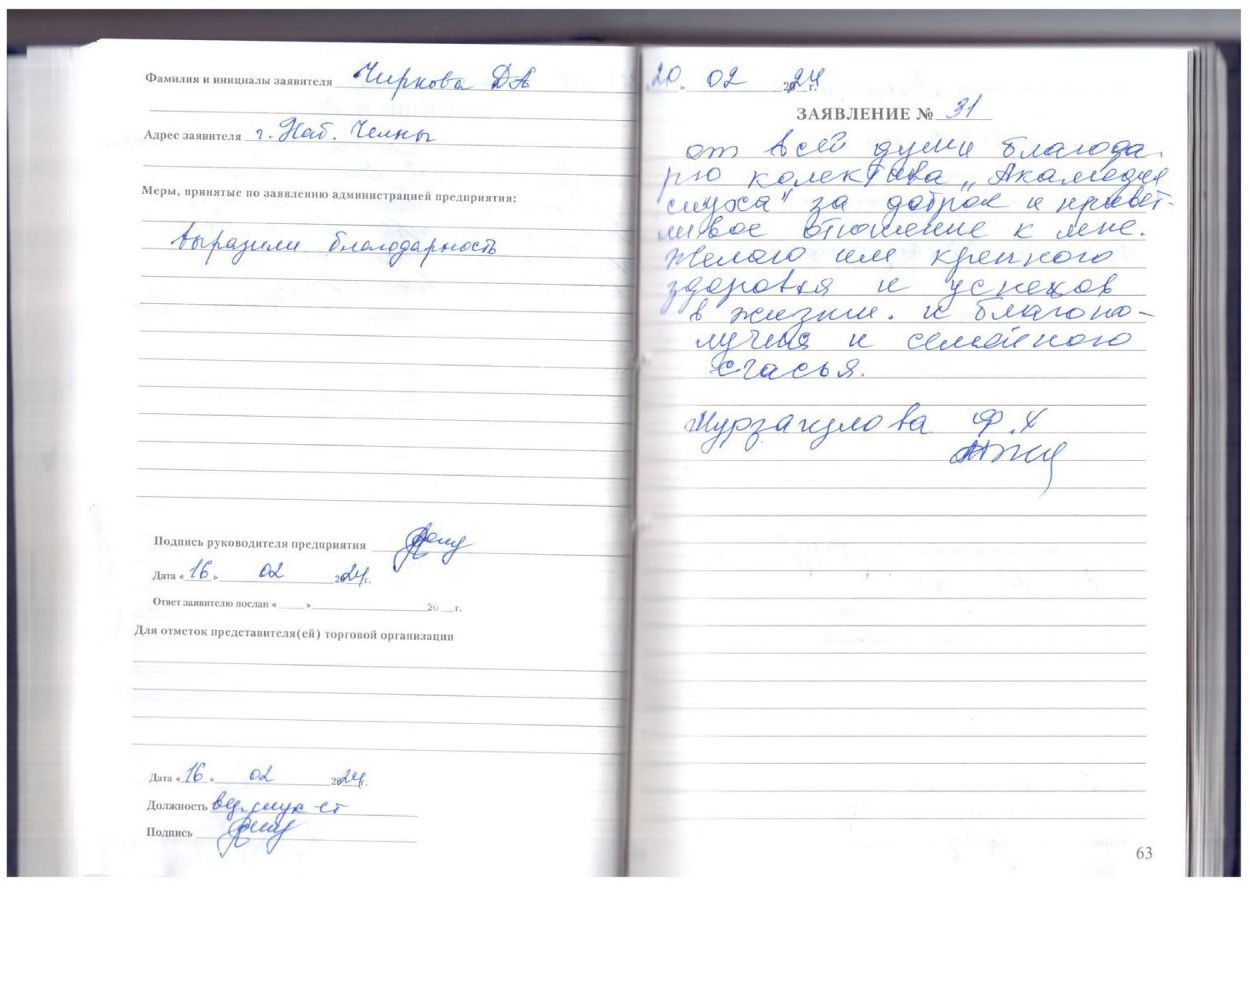 Фамилия и инициалы заявителя Чиркова Д А
Адрес заявителя г. Наб. Челны
Меры, принятые по заявлению администрацией предприятия:
выразили благодарность
Подпись руководителя предприятия
Дата «16» 02 2024 г.
Ответ заявителю послан «____» 20__г.
Для отметок представителя(ей) торговой организации
Дата «16» 02 2024г.
Должность вед. слух-ст
Подпись
20. 02 2024 г.
ЗАЯВЛЕНИЕ № 31
от всей души благода
рю колектива „Академия
слуха" за доброе и привет-
ливое отношение к мне.
Желаю им крепкого
здоровья и успехов
в жизни. и благопо-
лучия и семейного
счасья.
Мурзакулова Ф.Х
63